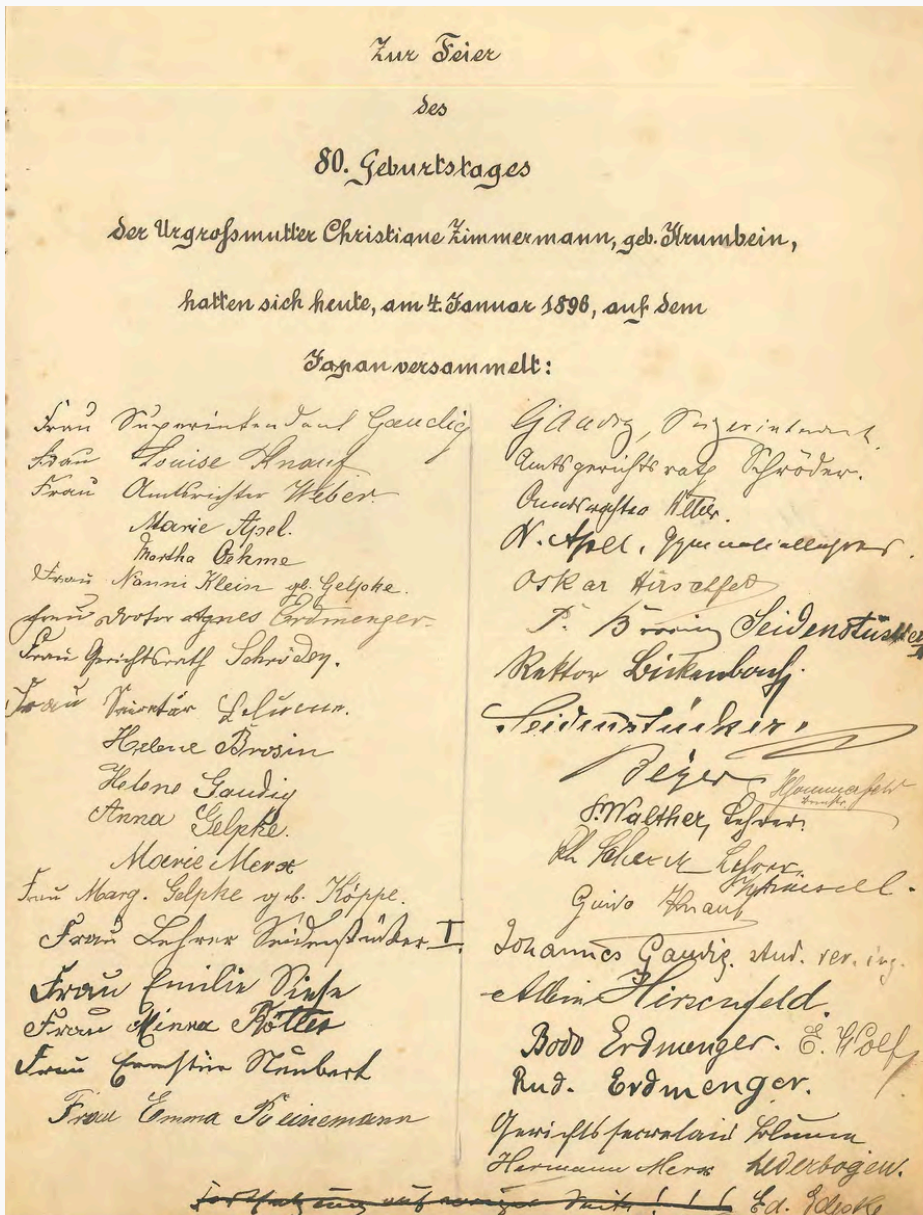 Zur Feier
des
80. Geburtstages
der Urgroßmutter Christiane Zimmermann, geb. Krumbein,
hatten sich heute, am 4. Januar 1896, auf dem
Japan versammelt:
Frau Superintendent Gaudig
Frau Louise Knauf
Frau Amtsrichter Weber.
Marie Apel.
Martha Oehme
Frau Nanni Klein gb. Gelpke.
Frau Doktor Agnes Erdmenger.
Frau Gerichtsrath Schröder.
Frau Secretär
Helene Brosin
Helene Gaudig
Anna Gelpke.
Marie Merx
Frau Marg. Gelpke geb. Köppe.
Frau Lehrer Seidenstücker I.
Frau Emilie Siese
Frau Minna Kötter
Frau Ernstine Neubert
Frau Emma Reinemann
Gaudig, Superintendent.
Amtsgerichtsrath Schröder.
Amtsrichter
N. Apel, Gymnasiallehrer.
Oskar Hirschfeld
Seidenstücker
Rektor Bickenbach.
Seidenstücker.
Beyer
Walther, Lehrer.
Lehrer.
Guido Knauf
Johannes Gaudig. stud. rer. ing.
Albin Hirschfeld.
Bodo Erdmenger. E. Wolf
Rud. Erdmenger.
Gerichtssecretair Blume
Hermann Merx Lederbogen.
Fortsetzung auf voriger Seite!!!
Ed. Gelpke